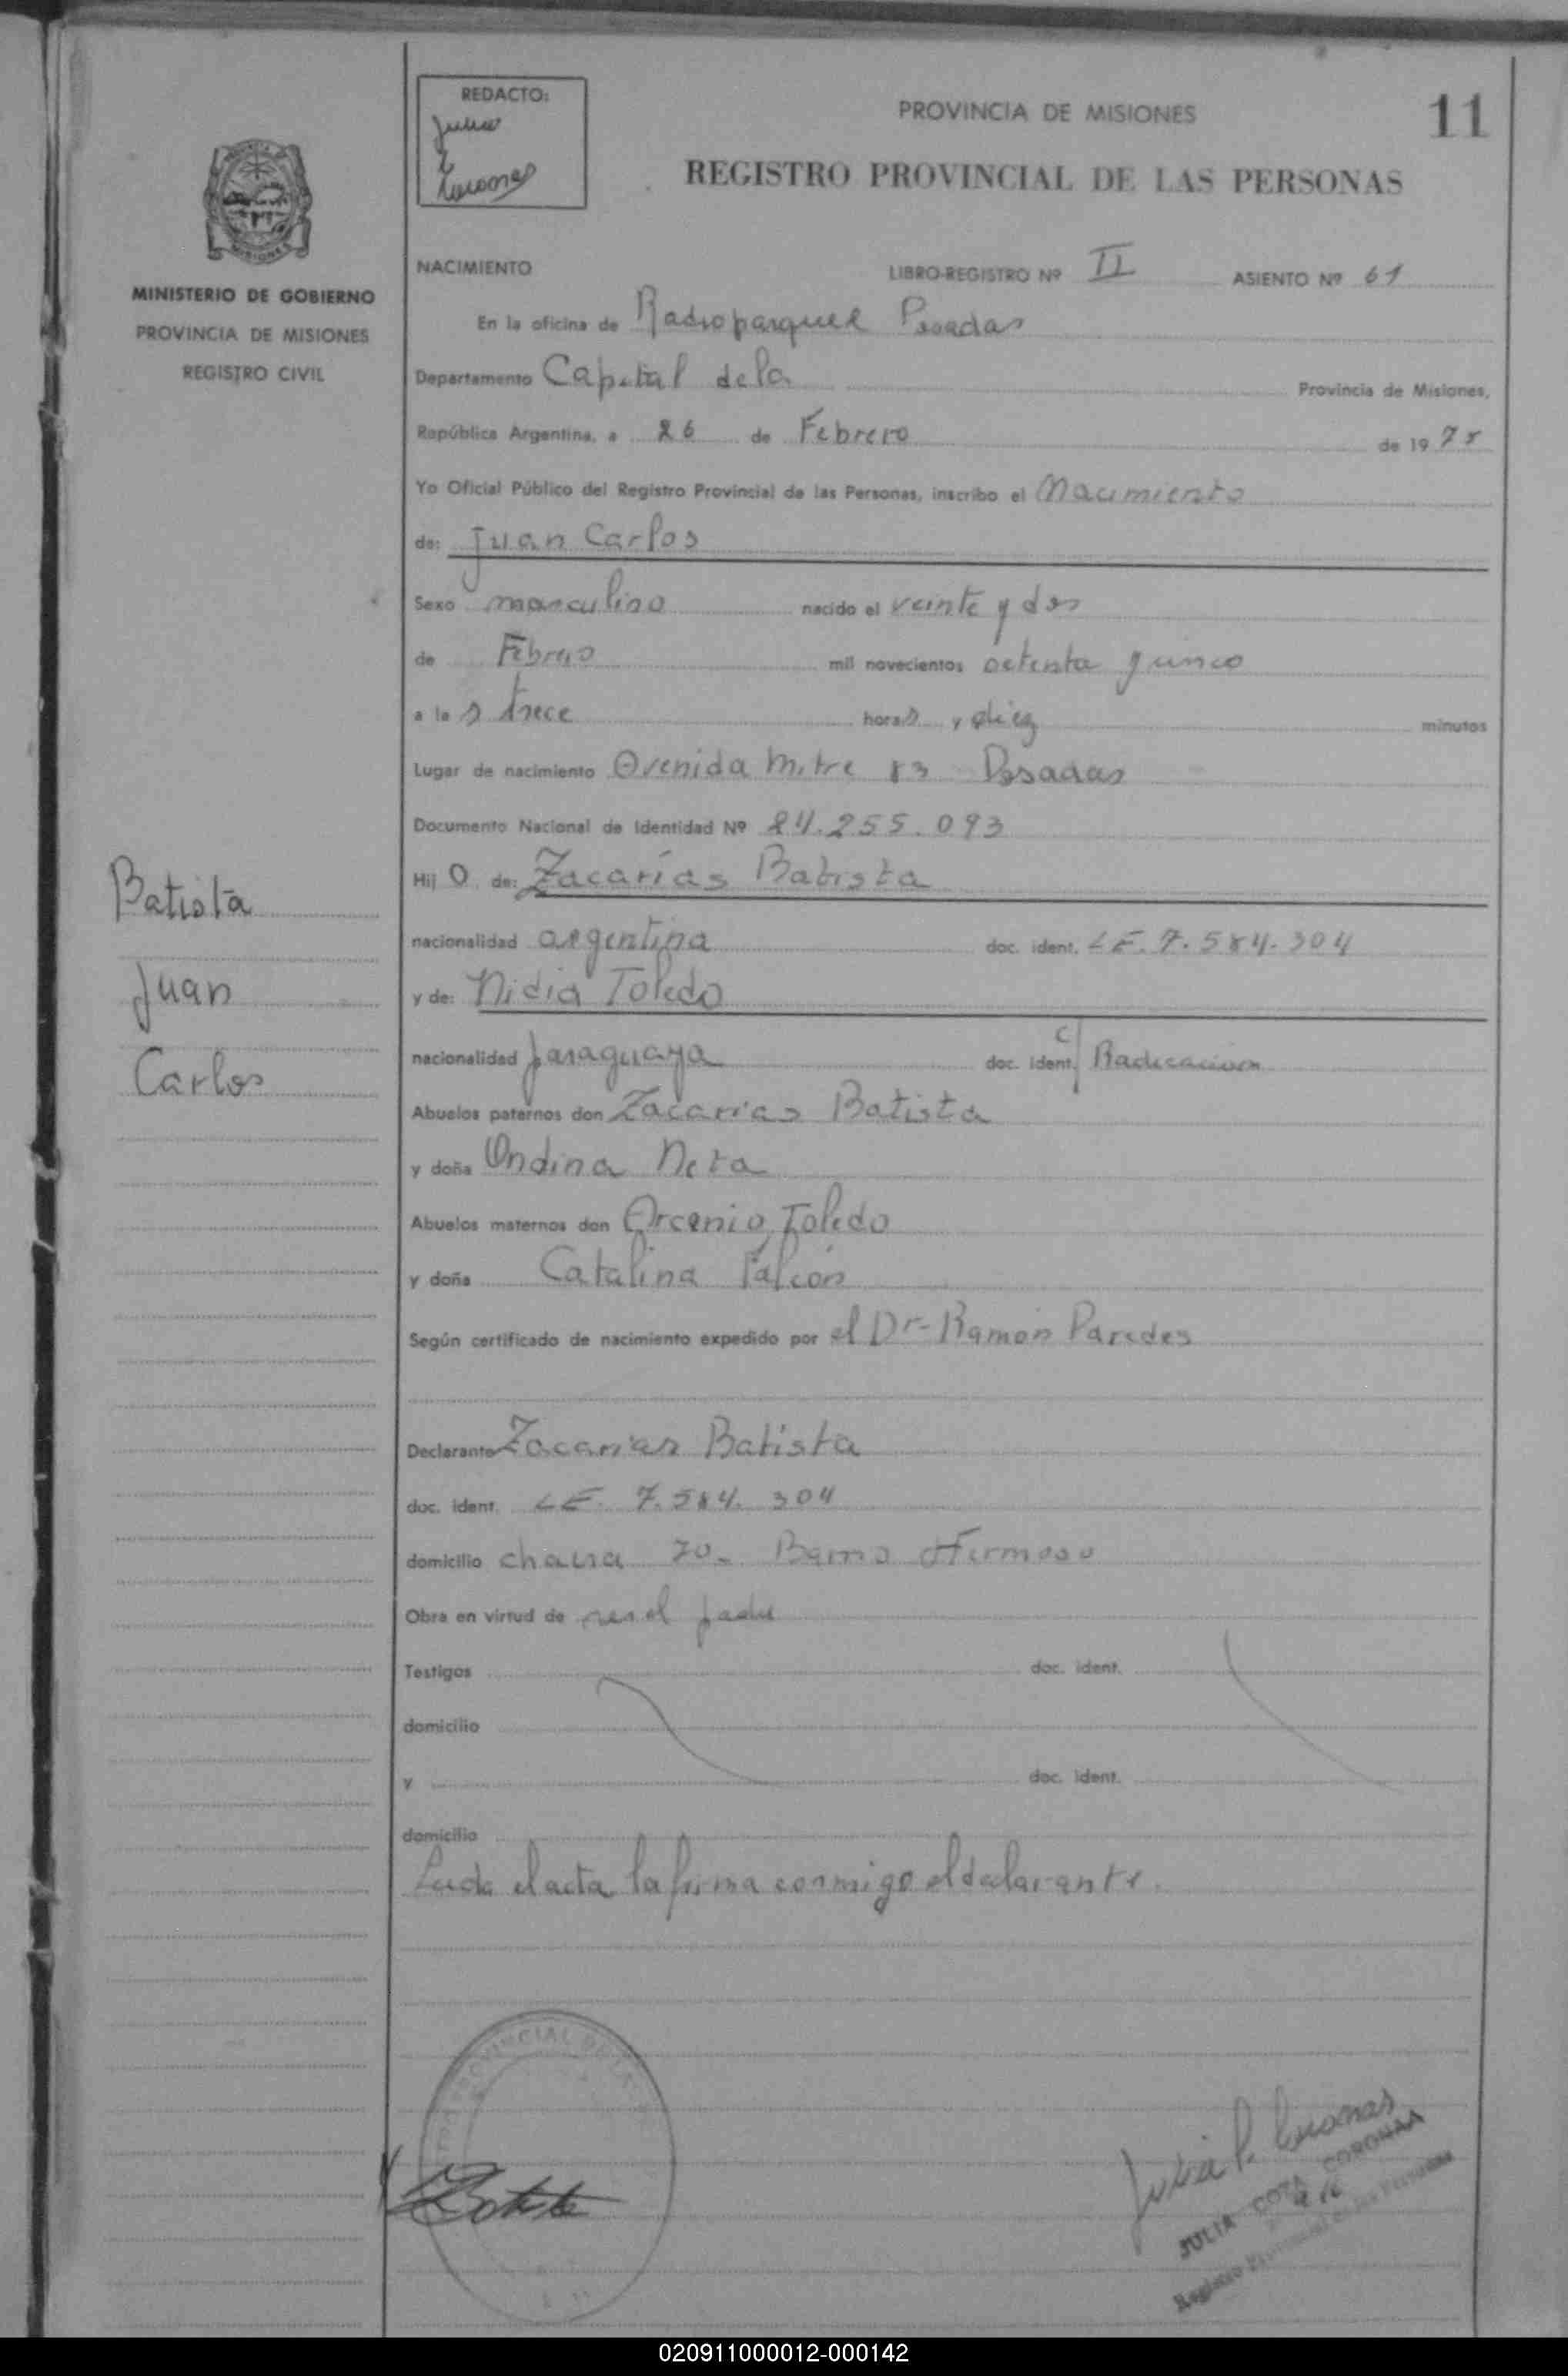 REDACTO:
PROVINCIA DE MISIONES
11
REGISTRO PROVINCIAL DE LAS PERSONAS
MISIONES
MINISTERIO DE GOBIERNO
PROVINCIA DE MISIONES
REGISTRO CIVIL
NACIMIENTO LIBRO-REGISTRO Nº II ASIENTO Nº 61
En la oficina de Posadas
Departamento Capital de la Provincia de Misiones,
República Argentina, a 26 de Febrero de 1975
Yo Oficial Público del Registro Provincial de las Personas, inscribo el Nacimiento
de: Juan Carlos
Sexo masculino nacido el veinte y dos
de Febrero mil novecientos setenta y cinco
a las trece horas y diez minutos
Lugar de nacimiento Avenida Mitre 83 Posadas
Documento Nacional de Identidad Nº 24.255.093
Hijo de: Zacarías Batista
nacionalidad argentina doc. ident. LE. 7.584.304
y de: Nidia Toledo
nacionalidad paraguaya doc. ident. c/ Radicacion
Abuelos paternos don Zacarias Batista
y doña Ondina Neta
Abuelos maternos don Arcenio Toledo
y doña Catalina Falcón
Según certificado de nacimiento expedido por el Dr- Ramón Paredes
Declarante Zacarias Batista
doc. ident. LE. 7.584.304
domicilio chacra 70- Barrio Hermoso
Obra en virtud de ser el padre
Testigos doc. ident.
domicilio
y doc. ident.
domicilio
Leida el acta la firma conmigo el declarante.
Batista
Juan
Carlos
JULIA
Registro Provincial de las Personas
020911000012-000142